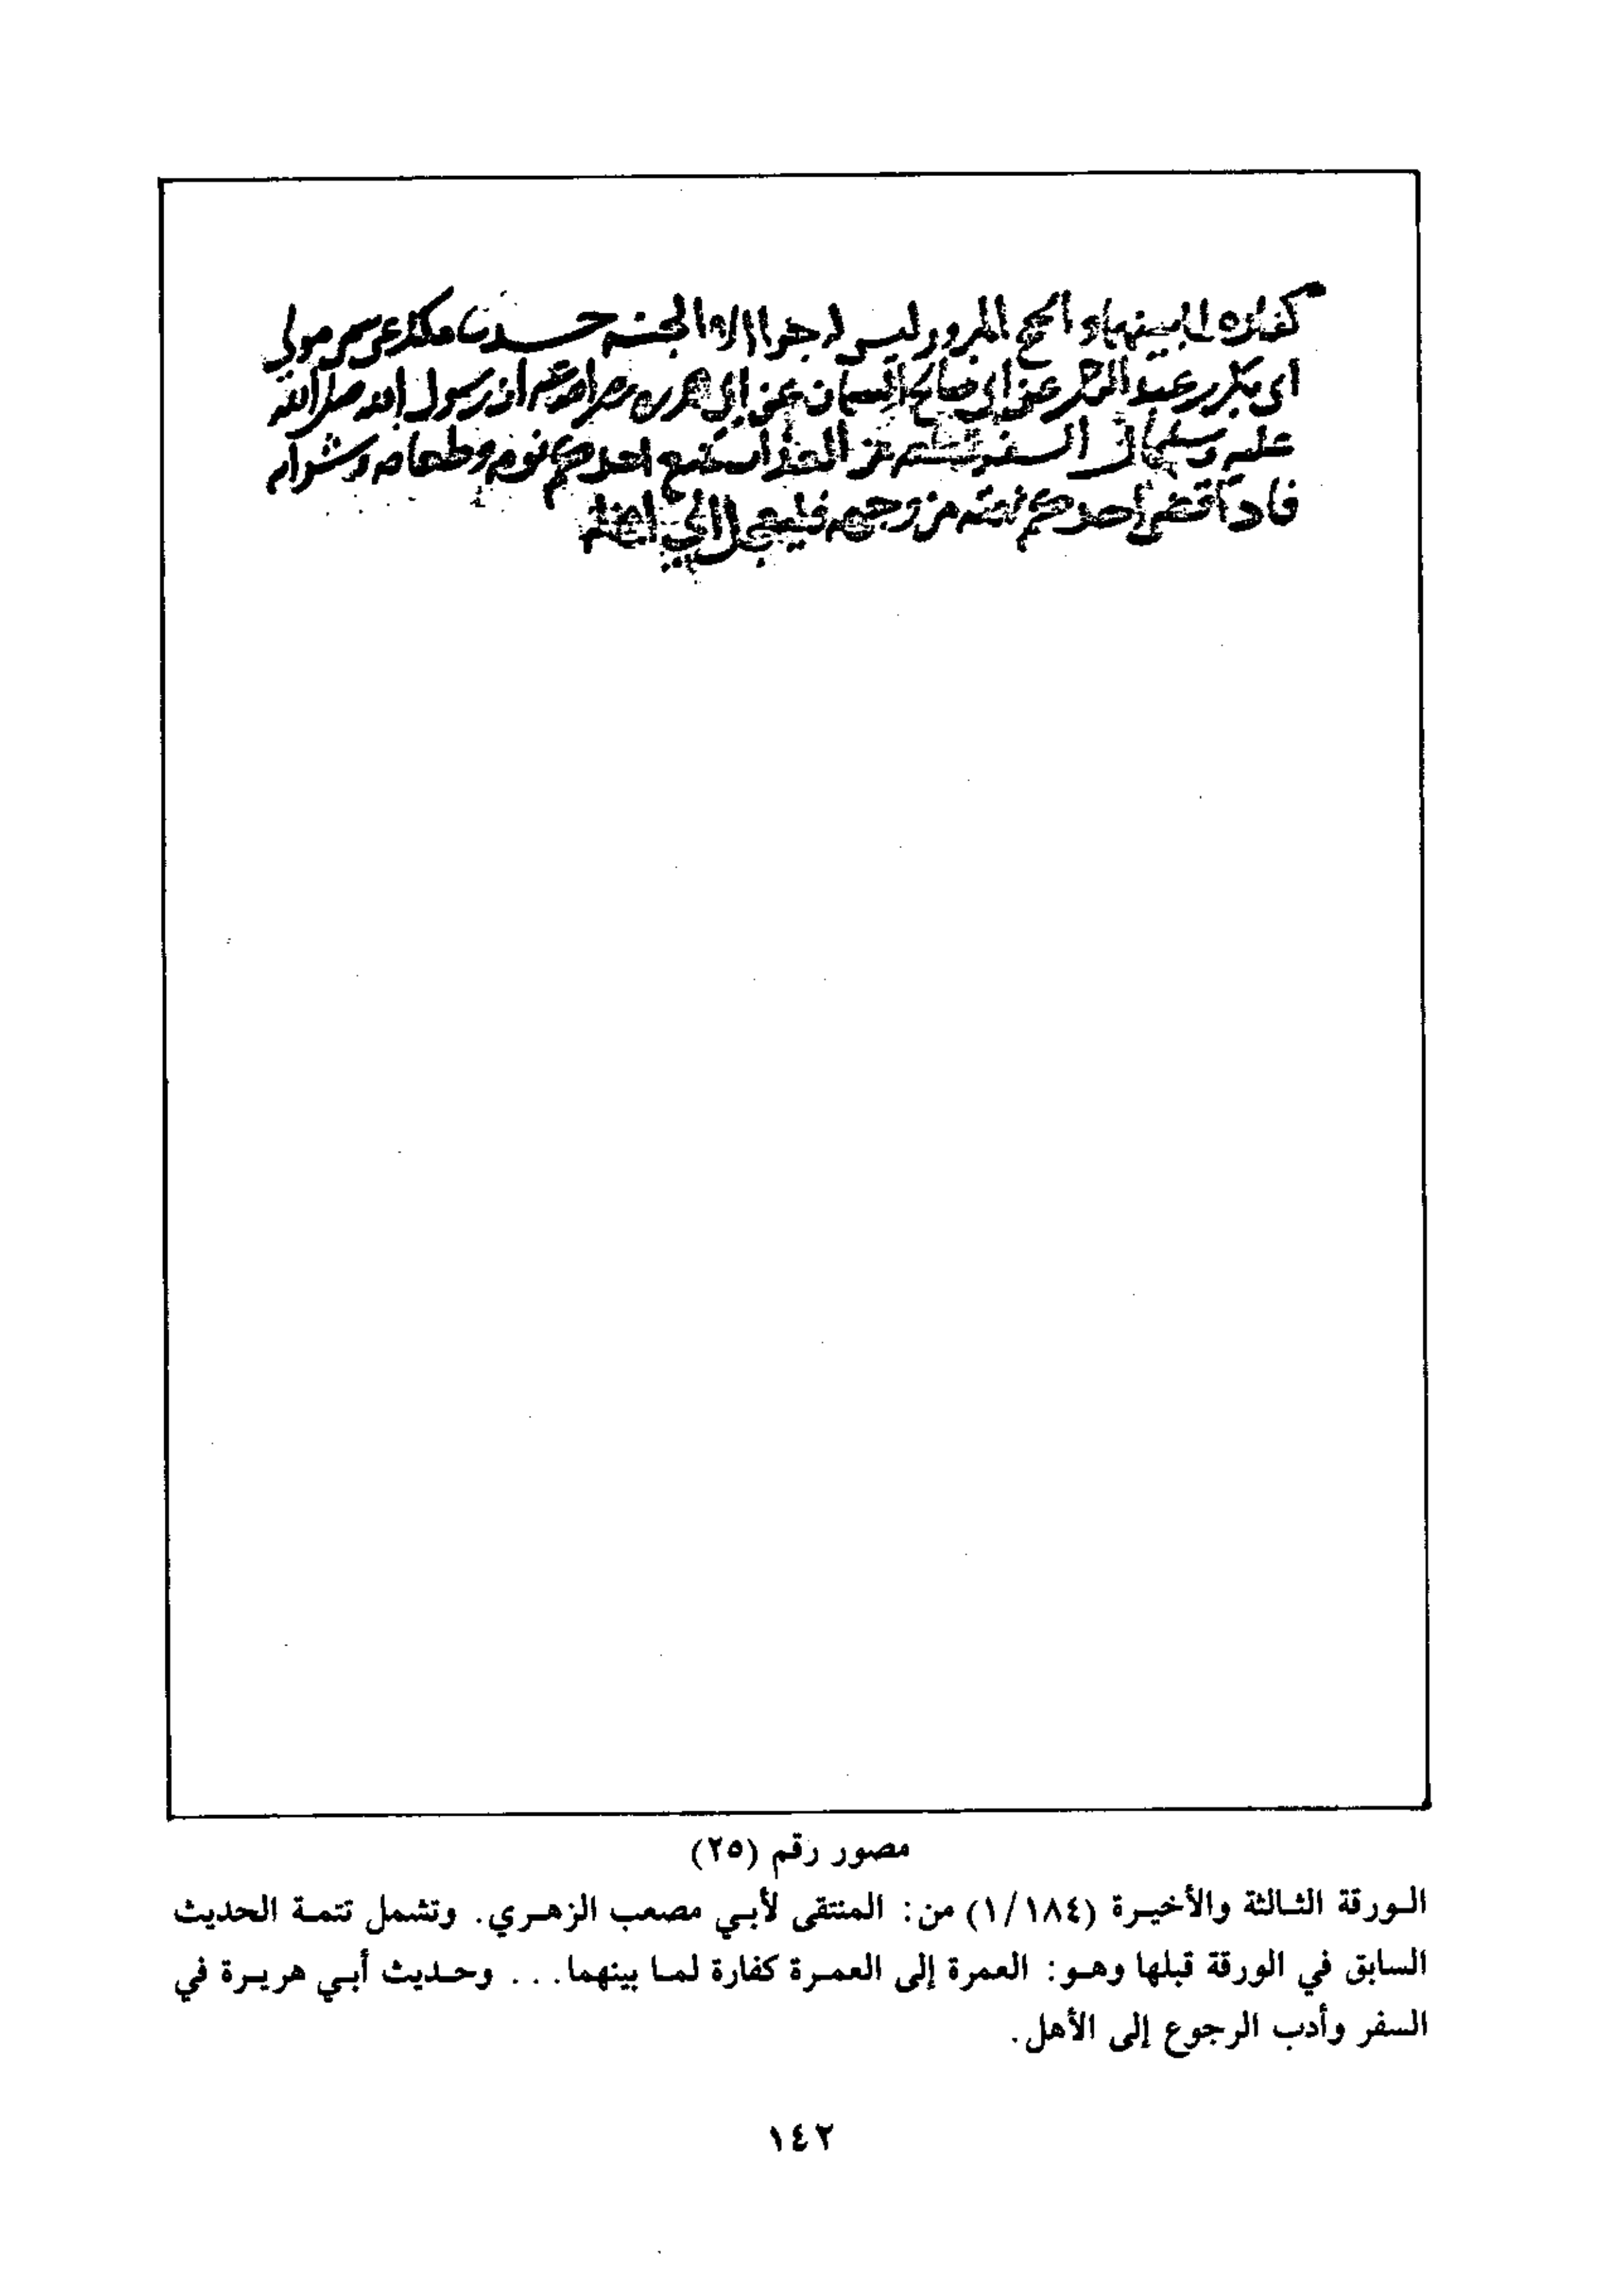 كفارة لما بينهما والحج المبرور ليس له جزا الا الجنة حدثنا ملك عن سمي مولى
ابي بكر بن عبد الرحمن عن ابي صالح السمان عن ابي هريرة رضي الله عنه ان رسول الله صلى الله
عليه وسلم قال السفر قطعة من العذاب يمنع احدكم نومه وطعامه وشرابه
فاذا قضى احدكم نهمته من وجهه فليعجل الى اهله
مصور رقم (٢٥)
الورقة الثالثة والأخيرة (١/١٨٤) من: المنتقى لأبي مصعب الزهري. وتشمل تتمة الحديث
السابق في الورقة قبلها وهو: العمرة إلى العمرة كفارة لما بينهما... وحديث أبي هريرة في
السفر وأدب الرجوع إلى الأهل.
١٤٢